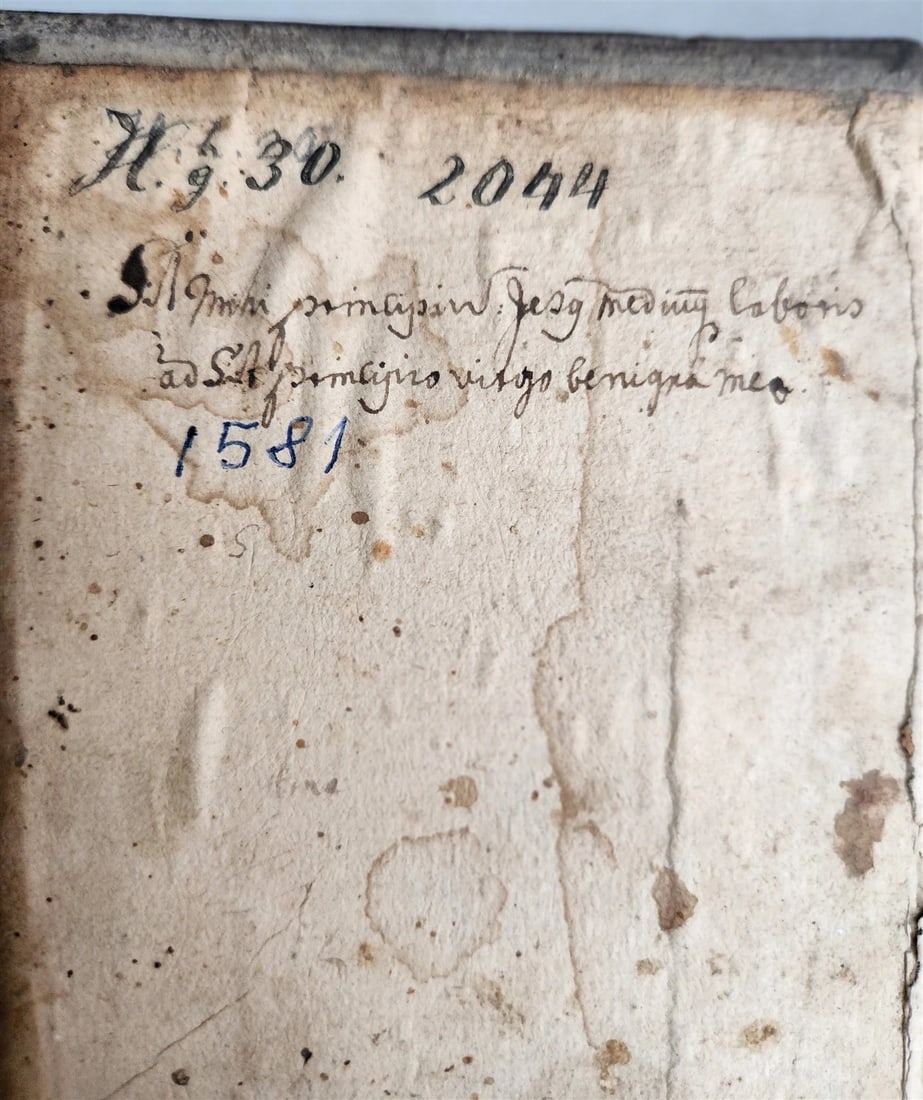 H. h/g. 30. 2044
Sit Mihi principiū: Jesq mediūq laboris
ad Sit principio virgo benigna mea.
1581
S